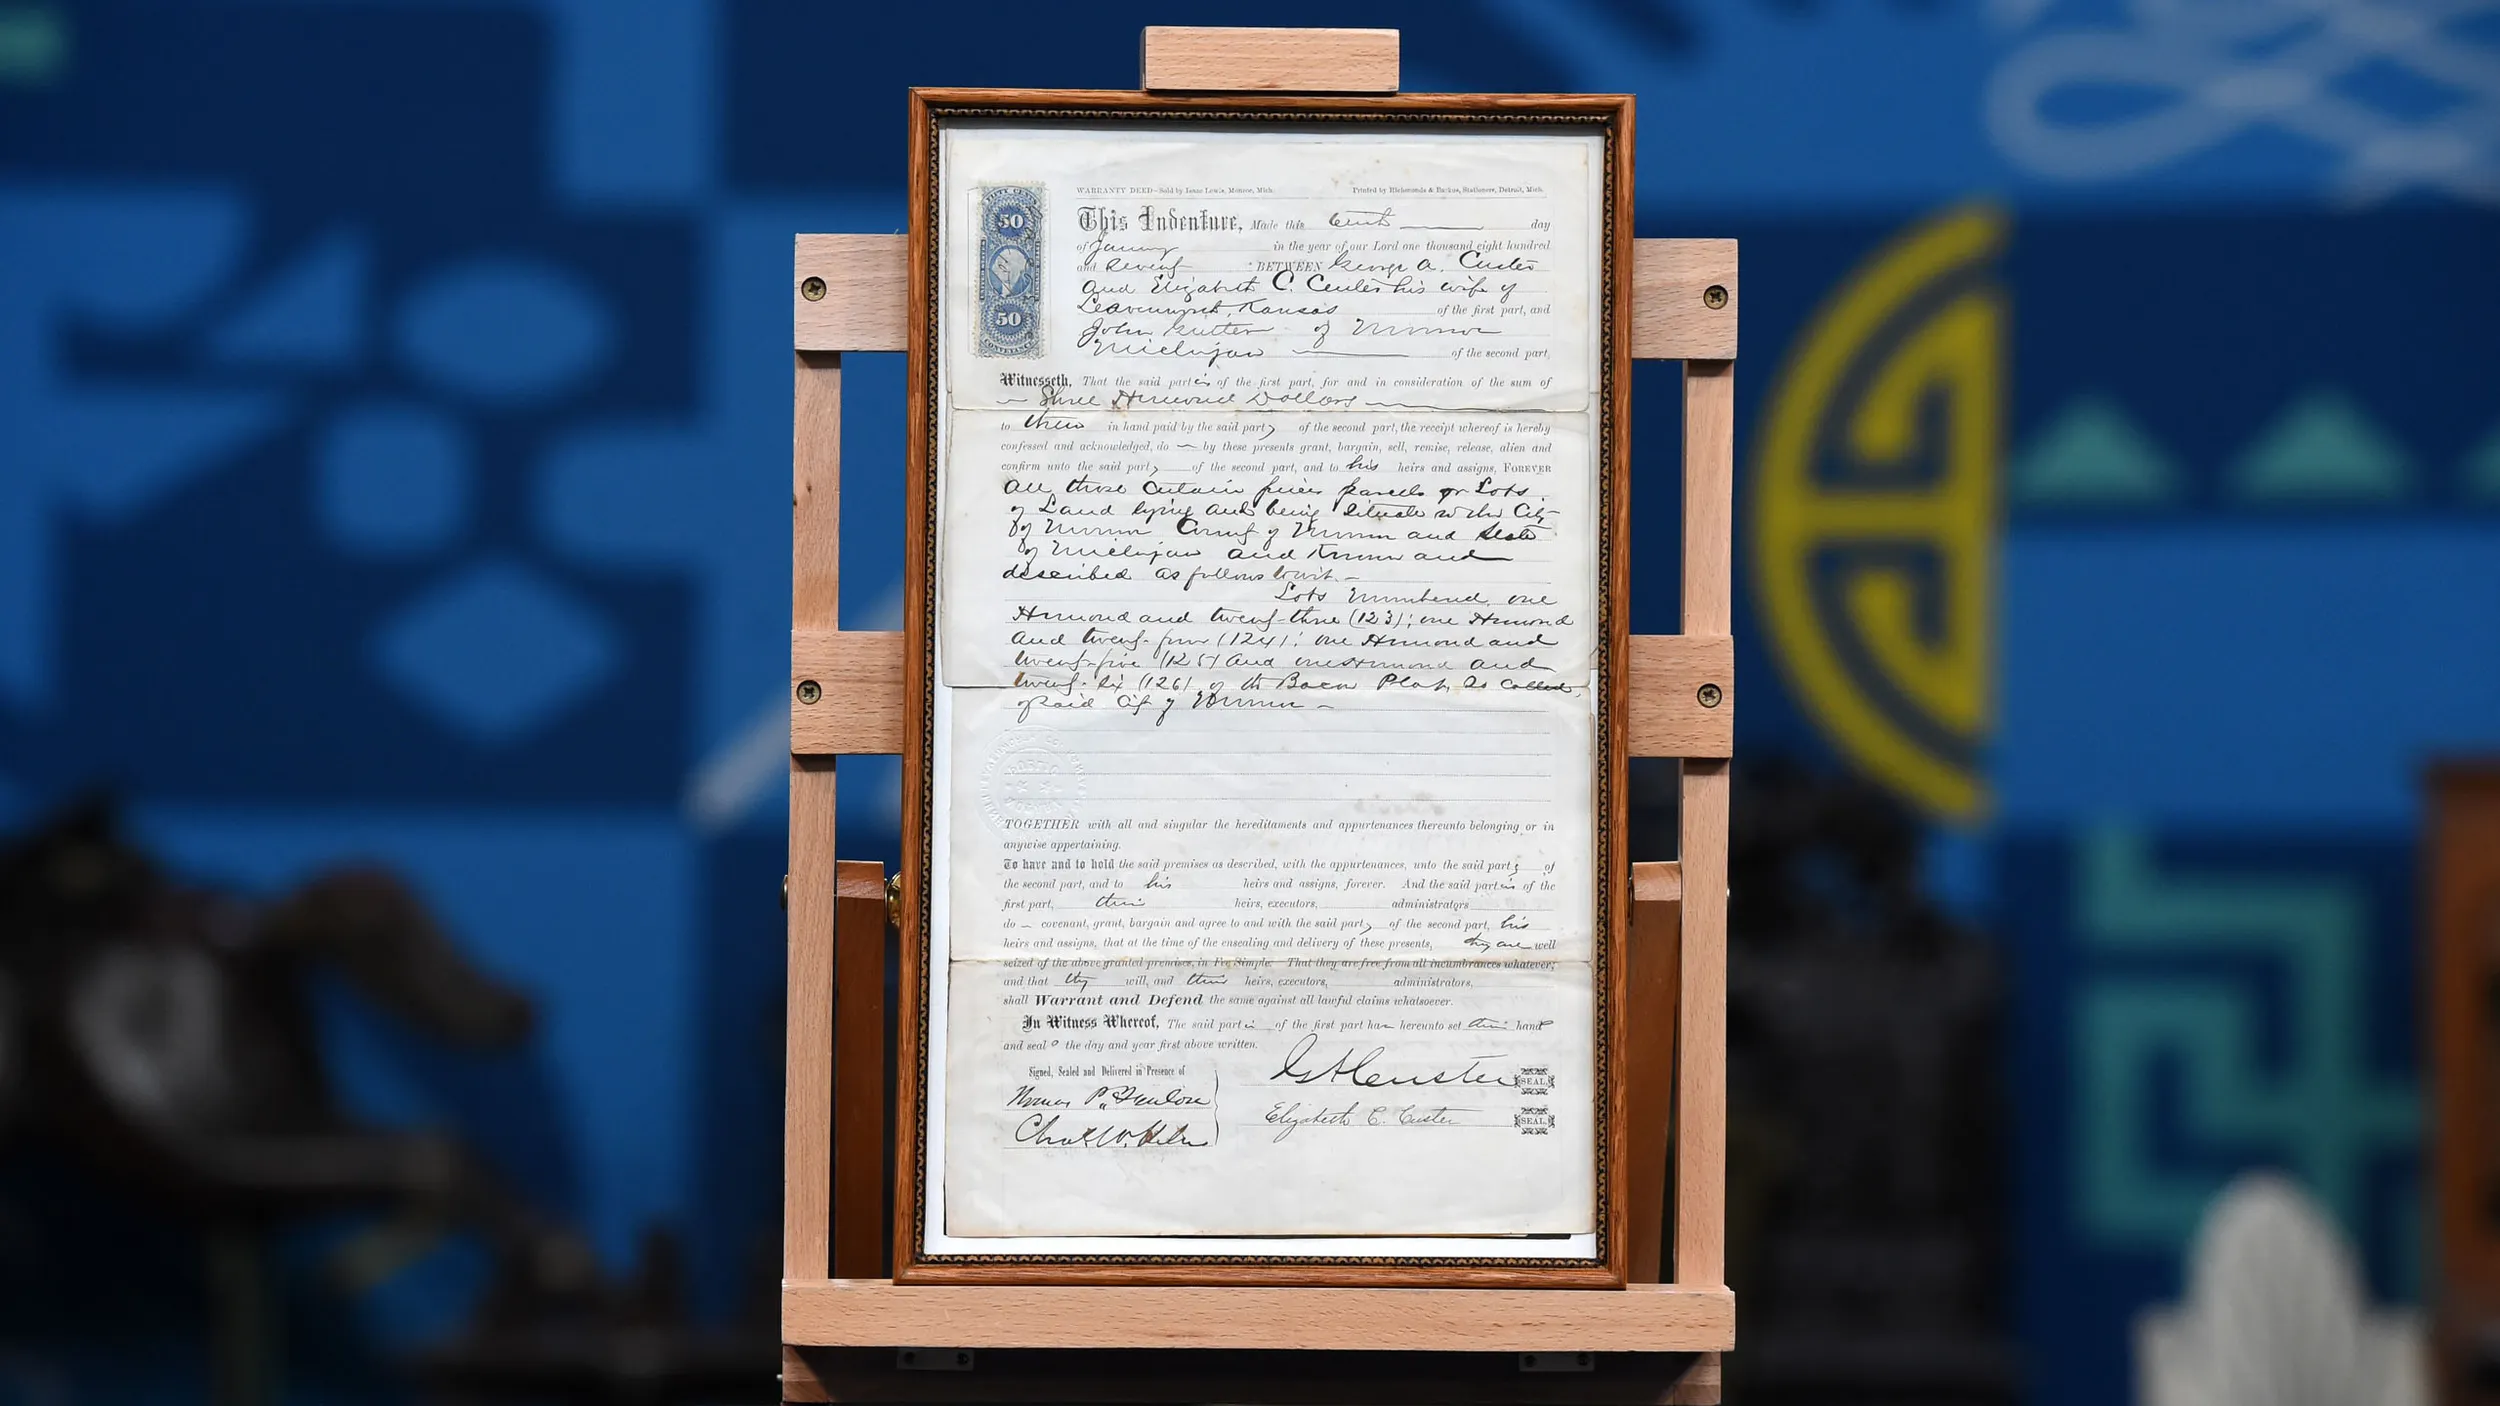 FIFTY CENTS
50
50
CONVEYANCE
WARRANTY DEED—Sold by Isaac Lewis, Monroe, Mich.
Printed by Richmonds & Backus, Stationers, Detroit, Mich.
This Indenture, Made this day
of January in the year of our Lord one thousand eight hundred
and Seventy BETWEEN George A. Custer
and Elizabeth C. Custer his wife of
Leavenworth, Kansas of the first part, and
John of Monroe
Michigan of the second part,
Witnesseth, That the said parties of the first part, for and in consideration of the sum of
Three Hundred Dollars
to them in hand paid by the said party of the second part, the receipt whereof is hereby
confessed and acknowledged, do by these presents grant, bargain, sell, remise, release, alien and
confirm unto the said party of the second part, and to his heirs and assigns, FOREVER
All those certain pieces parcels or Lots
of Land lying and being situate in the City
of Monroe County of Monroe and State
of Michigan and Known and
described as follows to wit.
Lots Numbered one
Hundred and twenty-three (123); one Hundred
and twenty-four (124); one Hundred and
twenty-five (125) and one Hundred and
twenty-six (126) of the Bacon Plat, so called,
of said City of Monroe
TOGETHER with all and singular the hereditaments and appurtenances thereunto belonging or in
anywise appertaining.
To have and to hold the said premises as described, with the appurtenances, unto the said party of
the second part, and to his heirs and assigns, forever. And the said parties of the
first part, their heirs, executors, administrators
do covenant, grant, bargain and agree to and with the said party of the second part, his
heirs and assigns, that at the time of the ensealing and delivery of these presents, they are well
seized of the above granted premises, in Fee Simple: That they are free from all incumbrances whatever;
and that they will, and their heirs, executors, administrators,
shall Warrant and Defend the same against all lawful claims whatsoever.
In Witness Whereof, The said parties of the first part have hereunto set their hands
and seals the day and year first above written.
Signed, Sealed and Delivered in Presence of
GACuster SEAL.
Elizabeth C. Custer SEAL.